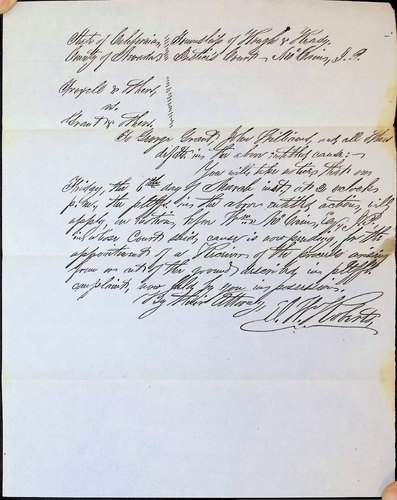 State of California Township of Rough & Ready
County of Nevada Justice's Court
vs.
Grant & others
To George Grant, John and all others
defdts in the above entitled cause:—
You will take notice that on
Friday, the 6th day of March inst, at 2 o'clock
p.m., the pltffs in the above entitled action, will
apply, on motion, before Wm. Esq., J.P.
in whose Court said cause is now pending, for the
appointment of a Receiver of the proceeds arising
from or out of the ground described in pltffs
complaint, now held by you in possession.
By their Attorney